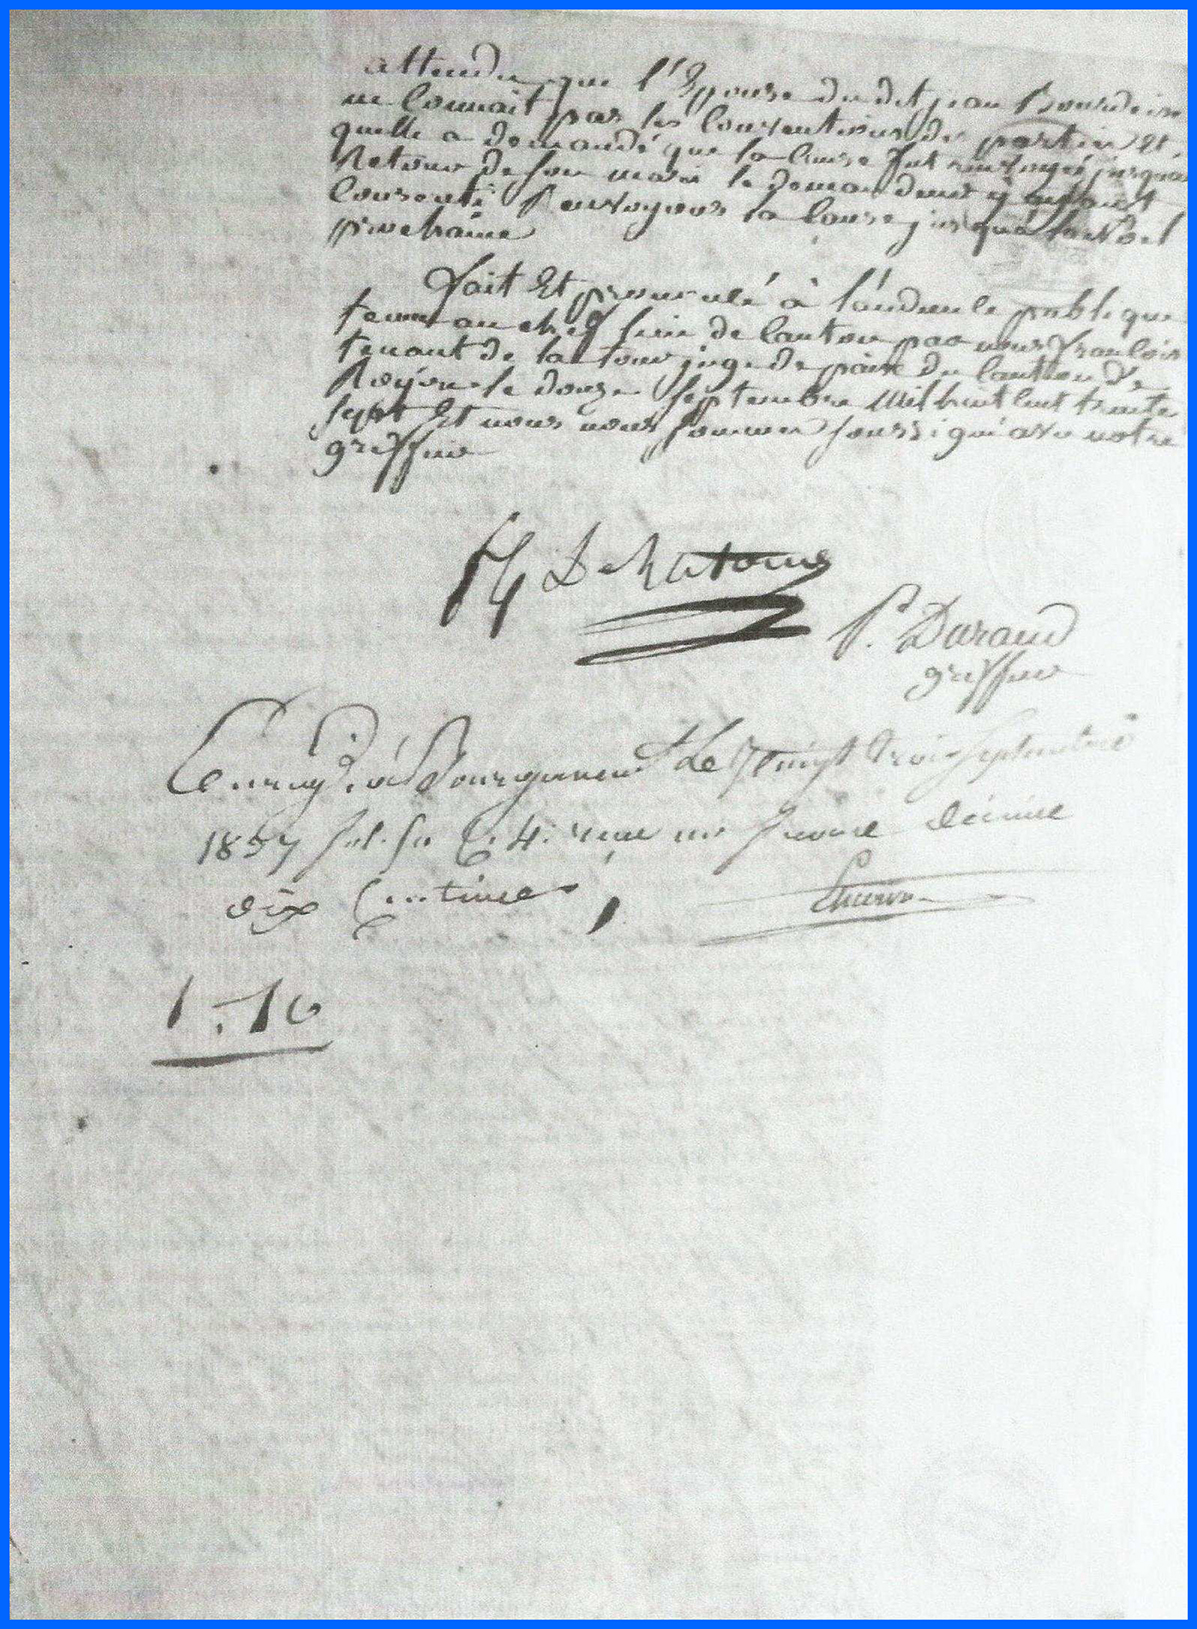 attendu que l'Epouse du dit jean Bourdein
ne Connait pas les Conventions des parties et
quelle a demandé que la Cause fut renvoyée jusqu'au
Retour de son mari le demandeur y ayant
Consenti Renvoyons la Cause jusqu'a la Noel
prochaine
Fait Et prononcé à l'audience publique
tenue au chef lieu de Canton par nous francois
tenant de la tour juge de paix du Canton de
Royère le douze Septembre Mil huit Cent trente
sept Et nous nous sommes soussigné avec notre
greffier
De Latour
P. Durand
greffier
Enregtré à Bourganeuf Le Vingt trois Septembre
1837 fol. C. 4. reçu un franc décime
dix Centimes
1 . 10